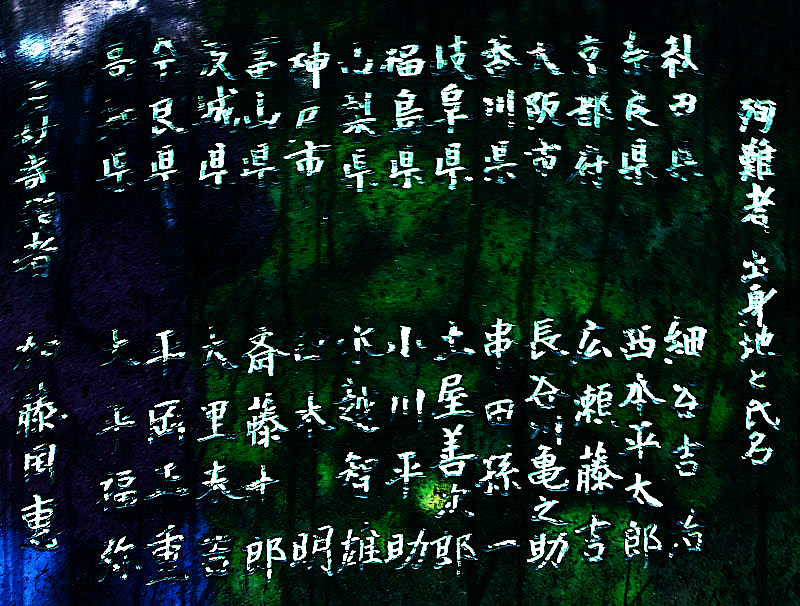 殉難者 出身地と氏名
秋田県 細谷吉治
奈良県 西本平太郎
京都府 広瀬藤吉
大阪市 長谷川亀之助
香川県 串田孫一
岐阜県 土屋善次郎
福島県 小川平助
山梨県 水越智雄
神戸市 明
富山県 斎藤 郎
茨城県 大里
奈良県 平岡正重
高知県 大平福弥
寄贈者 加藤